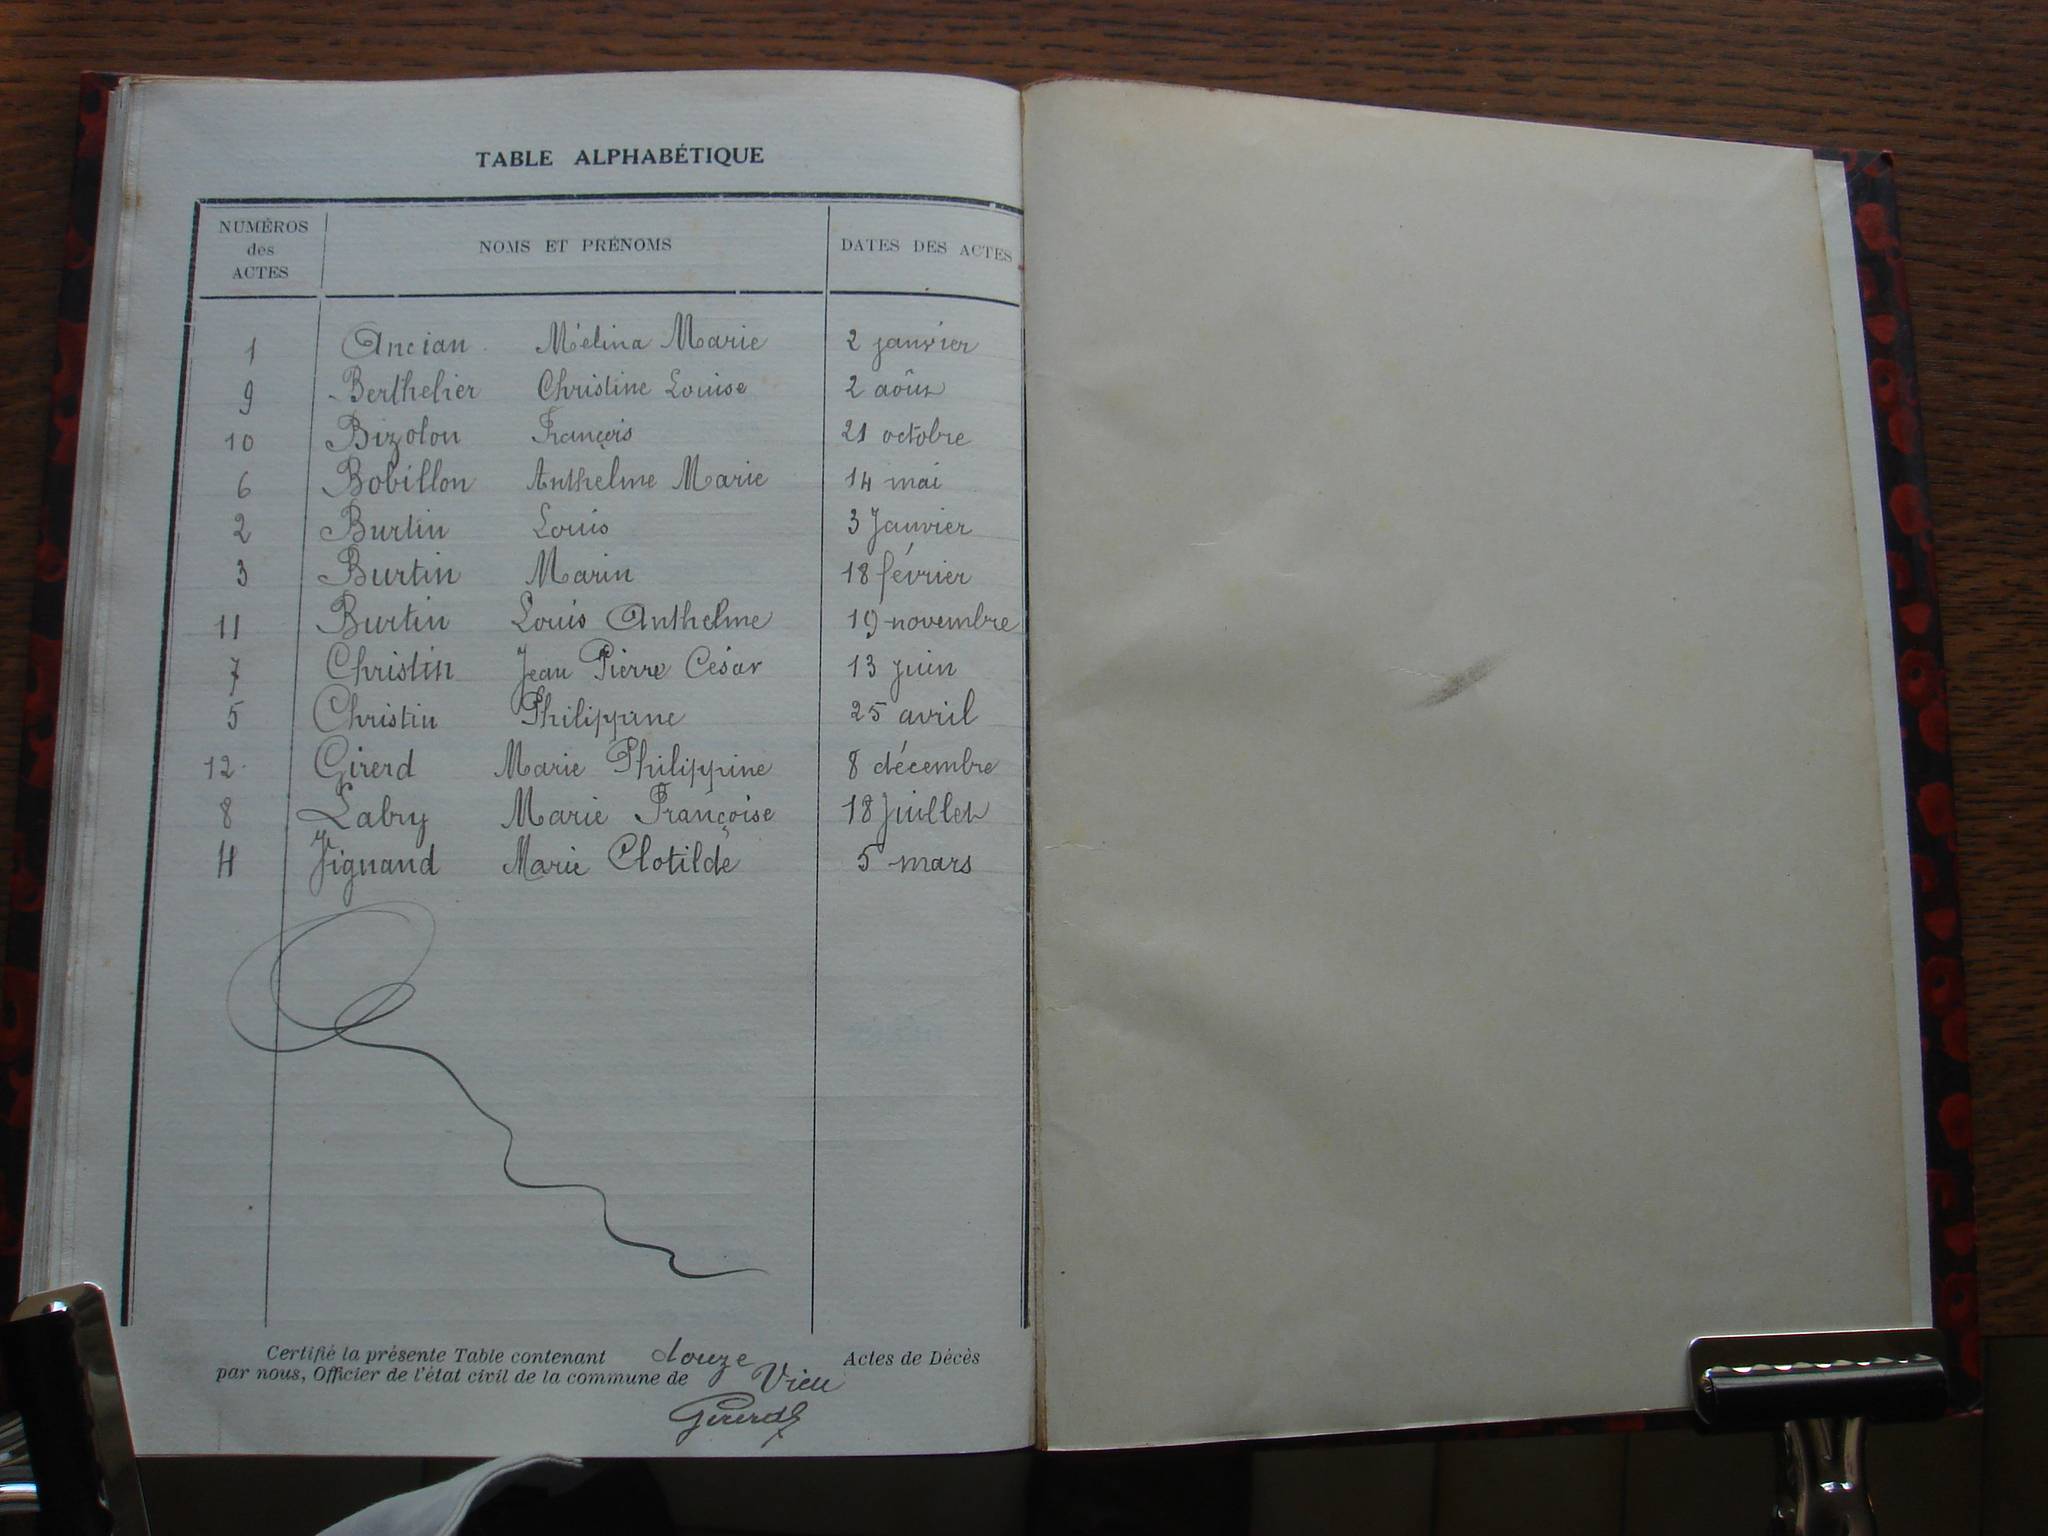 TABLE ALPHABÉTIQUE
NUMÉROS des ACTES NOMS ET PRÉNOMS DATES DES ACTES
1 Ancian Mélina Marie 2 janvier
9 Berthelier Christine Louise 2 août
10 Bizolon François 21 octobre
6 Bobillon Anthelme Marie 14 mai
2 Burtin Louis 3 Janvier
3 Burtin Marin 18 février
11 Burtin Louis Anthelme 19 novembre
7 Christin Jean Pierre César 13 juin
5 Christin Philippine 25 avril
12 Girerd Marie Philippine 8 décembre
8 Labry Marie Françoise 18 Juillet
4 Marie Clotilde 5 mars
Certifié la présente Table contenant douze Actes de Décès
par nous, Officier de l'état civil de la commune de Vieu
Girerd